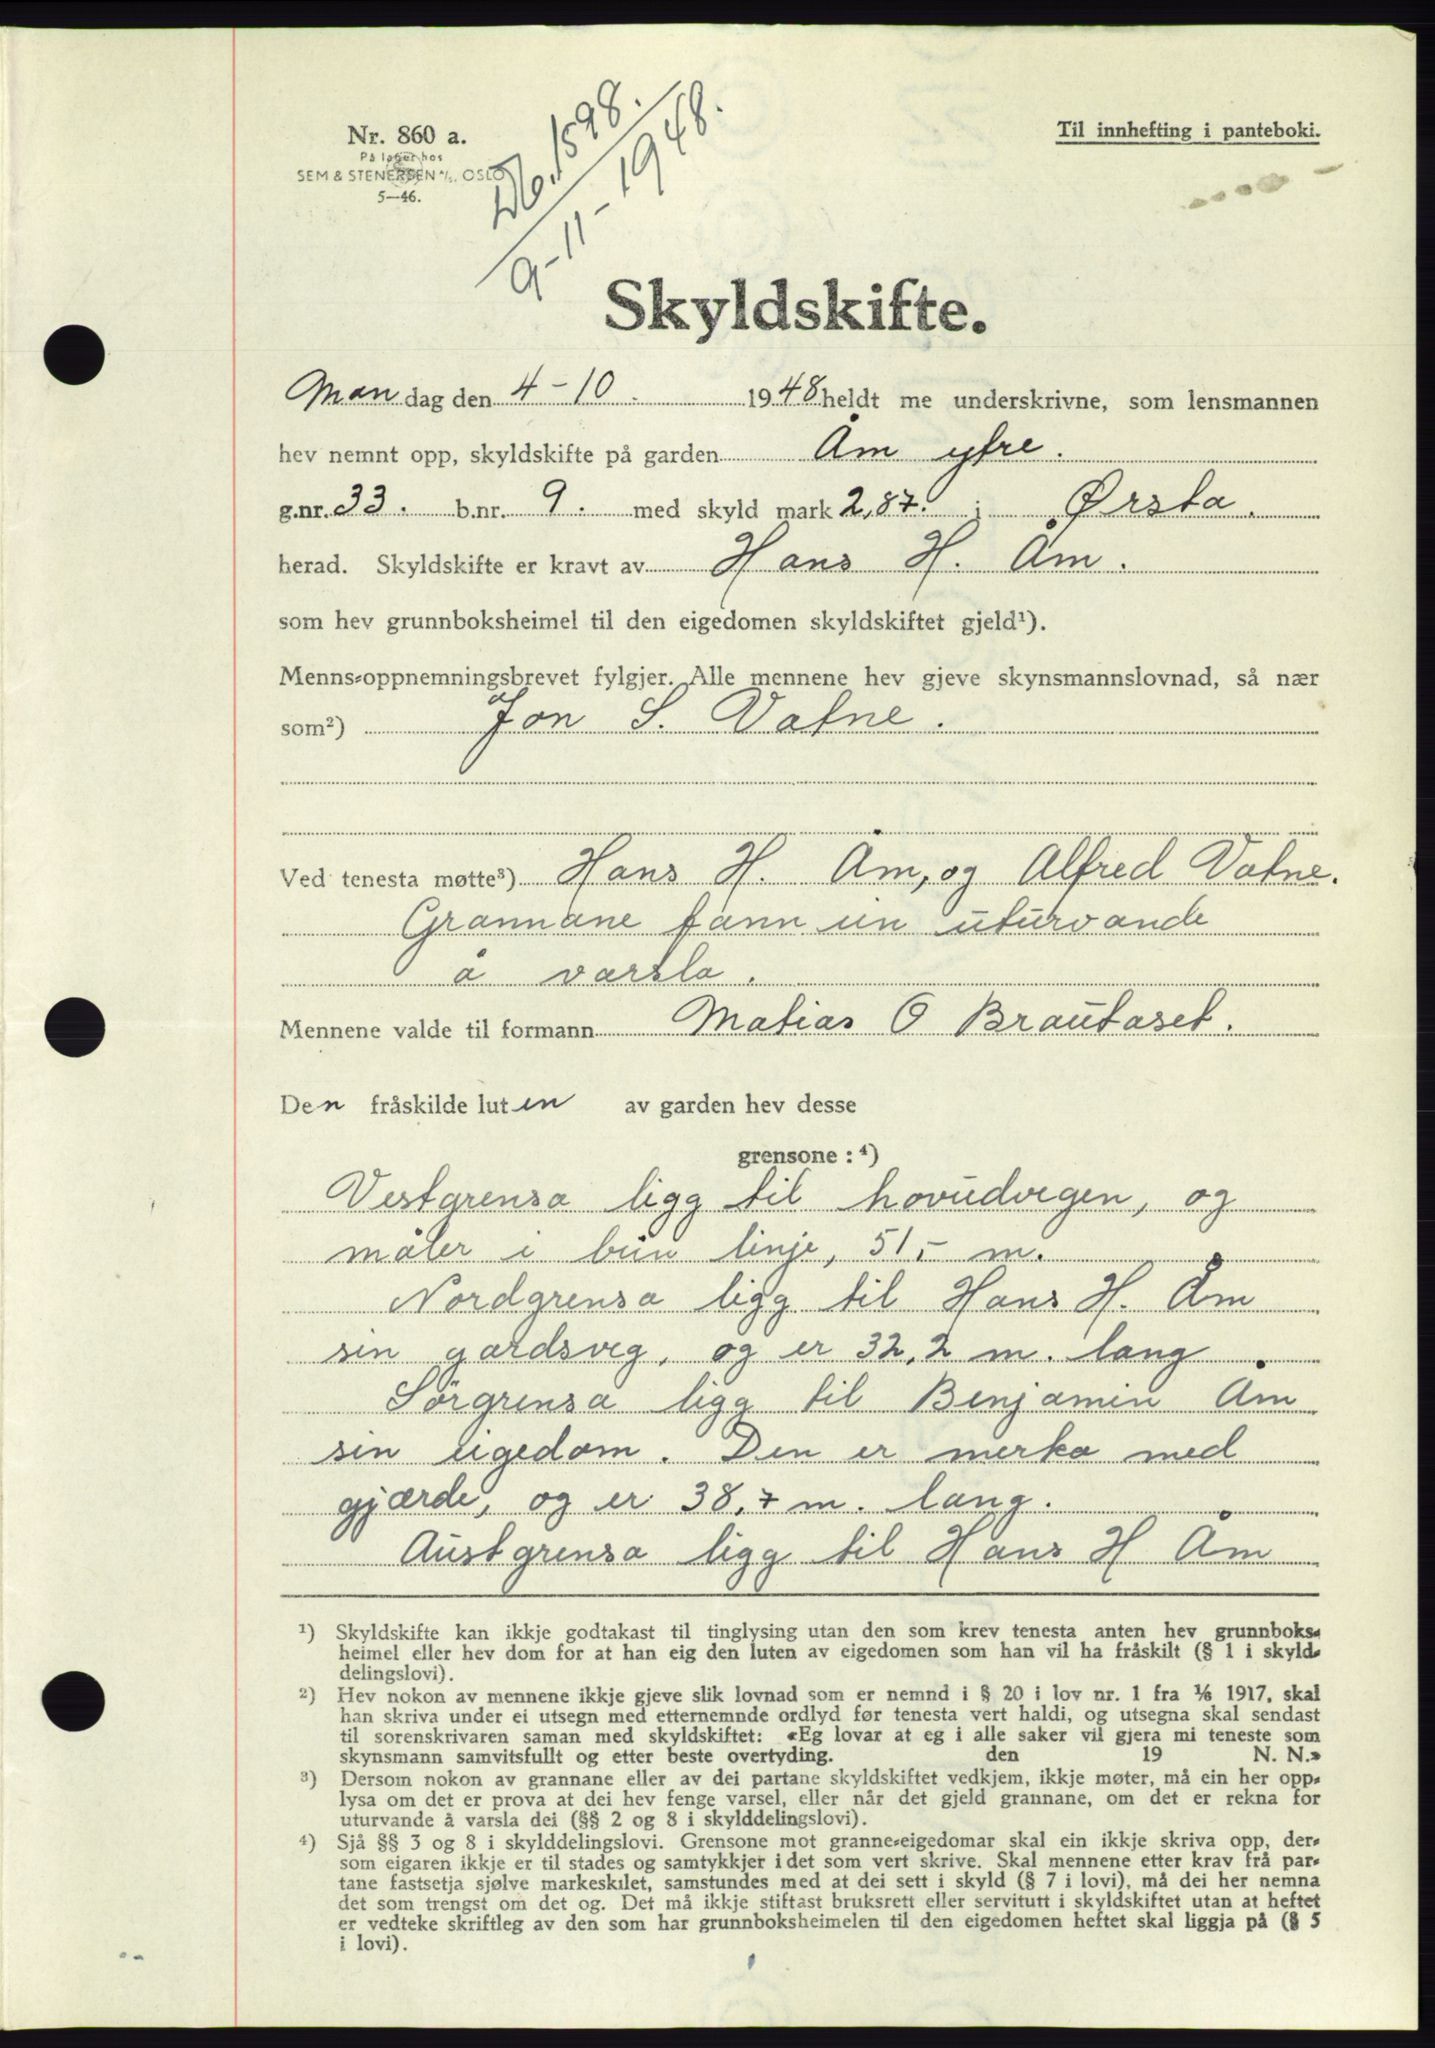 Nr. 860 a.
På lager hos
SEM & STENERSEN A/S, OSLO
5—46.
Db. 1598.
9-11-1948.
Til innhefting i panteboki.
Skyldskifte.
Mandag den 4-10. 1948 heldt me underskrivne, som lensmannen
hev nemnt opp, skyldskifte på garden Åm ytre.
g.nr. 33. b.nr. 9. med skyld mark 2,87. i Ørsta.
herad. Skyldskifte er kravt av Hans H. Åm.
som hev grunnboksheimel til den eigedomen skyldskiftet gjeld¹).
Menns-oppnemningsbrevet fylgjer. Alle mennene hev gjeve skynsmannslovnad, så nær
som²) Jon S. Vatne.
Ved tenesta møtte³) Hans H. Åm, og Alfred Vatne.
Grannane fann ein uturvande
å varsla.
Mennene valde til formann Matias O Brautaset.
Den fråskilde luten av garden hev desse
grensone : ⁴)
Vestgrensa ligg til hovudvegen, og
måler i bein linje, 51,- m.
Nordgrensa ligg til Hans H. Åm
sin gardsveg, og er 32,2 m. lang.
Sørgrensa ligg til Benjamin Åm
sin eigedom. Den er merka med
gjærde, og er 38,7 m. lang.
Austgrensa ligg til Hans H Åm
¹) Skyldskifte kan ikkje godtakast til tinglysing utan den som krev tenesta anten hev grunnboks-
heimel eller hev dom for at han eig den luten av eigedomen som han vil ha fråskilt (§ 1 i skyld-
delingslovi).
²) Hev nokon av mennene ikkje gjeve slik lovnad som er nemnd i § 20 i lov nr. 1 fra 1/6 1917, skal
han skriva under ei utsegn med etternemnde ordlyd før tenesta vert haldi, og utsegna skal sendast
til sorenskrivaren saman med skyldskiftet: «Eg lovar at eg i alle saker vil gjera mi teneste som
skynsmann samvitsfullt og etter beste overtyding. den 19 N. N.»
³) Dersom nokon av grannane eller av dei partane skyldskiftet vedkjem, ikkje møter, må ein her opp-
lysa om det er prova at dei hev fenge varsel, eller når det gjeld grannane, om det er rekna for
uturvande å varsla dei (§§ 2 og 8 i skylddelingslovi).
⁴) Sjå §§ 3 og 8 i skylddelingslovi. Grensone mot granne-eigedomar skal ein ikkje skriva opp, der-
som eigaren ikkje er til stades og samtykkjer i det som vert skrive. Skal mennene etter krav frå par-
tane fastsetja sjølve markeskilet, samstundes med at dei sett i skyld (§ 7 i lovi), må dei her nemna
det som trengst om det og. Det må ikkje stiftast bruksrett eller servitutt i skyldskiftet utan at heftet
er vedteke skriftleg av den som har grunnboksheimelen til den eigedomen heftet skal liggja på (§ 5
i lovi).